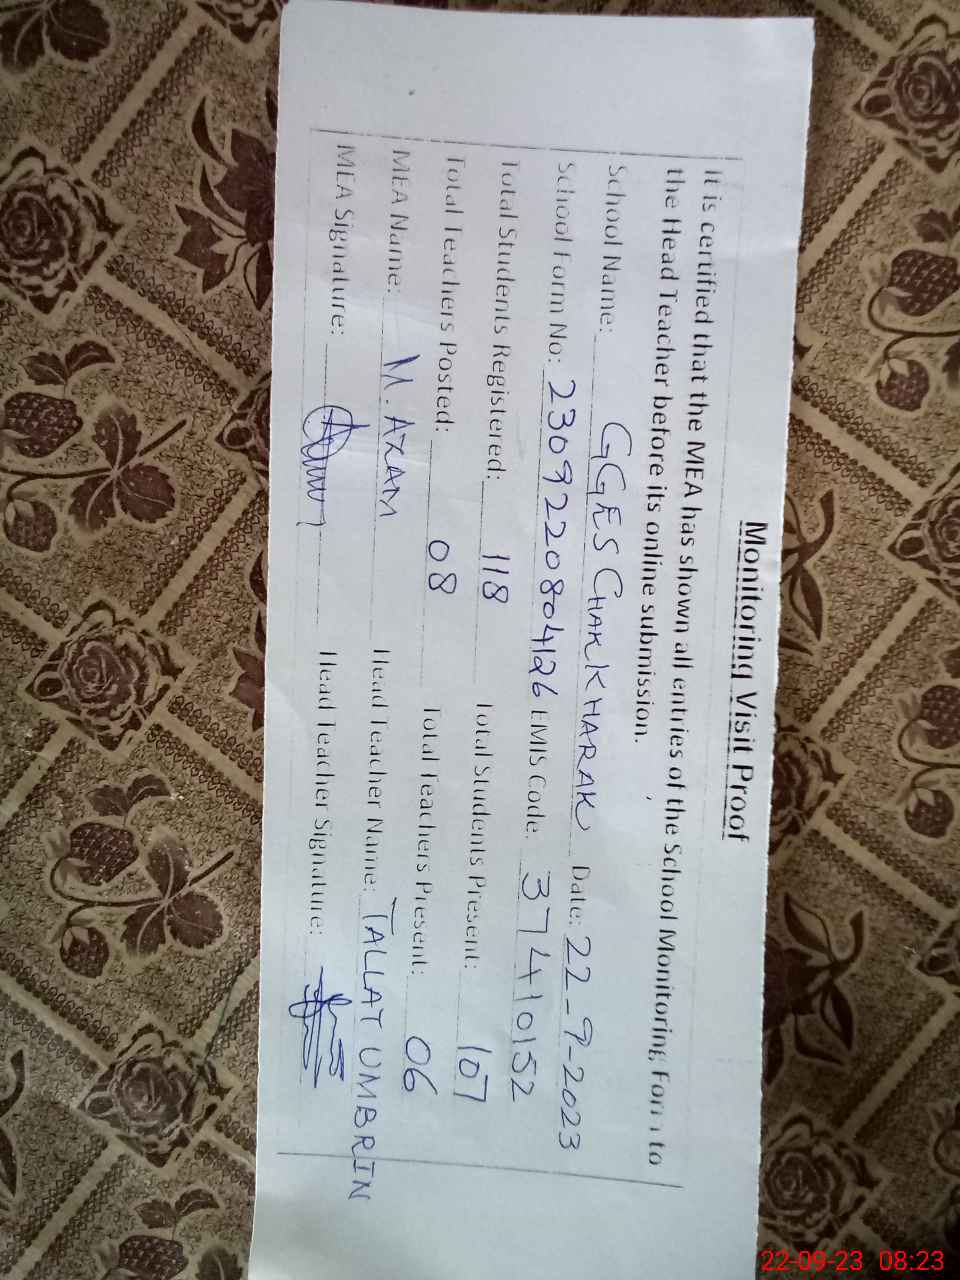 Monitoring Visit Proof
It is certified that the MEA has shown all entries of the School Monitoring Form to
the Head Teacher before its online submission.
School Name: GGES CHAK KHARAK Date: 22-9-2023
School Form No: 2309220804126 EMIS Code: 37410152
Total Students Registered: 118 Total Students Present: 107
Total Teachers Posted: 08 Total Teachers Present: 06
MEA Name: M. AZAM Head Teacher Name: TALLAT UMBRIN
MEA Signature: Head Teacher Signature:
22-09-23 08:23